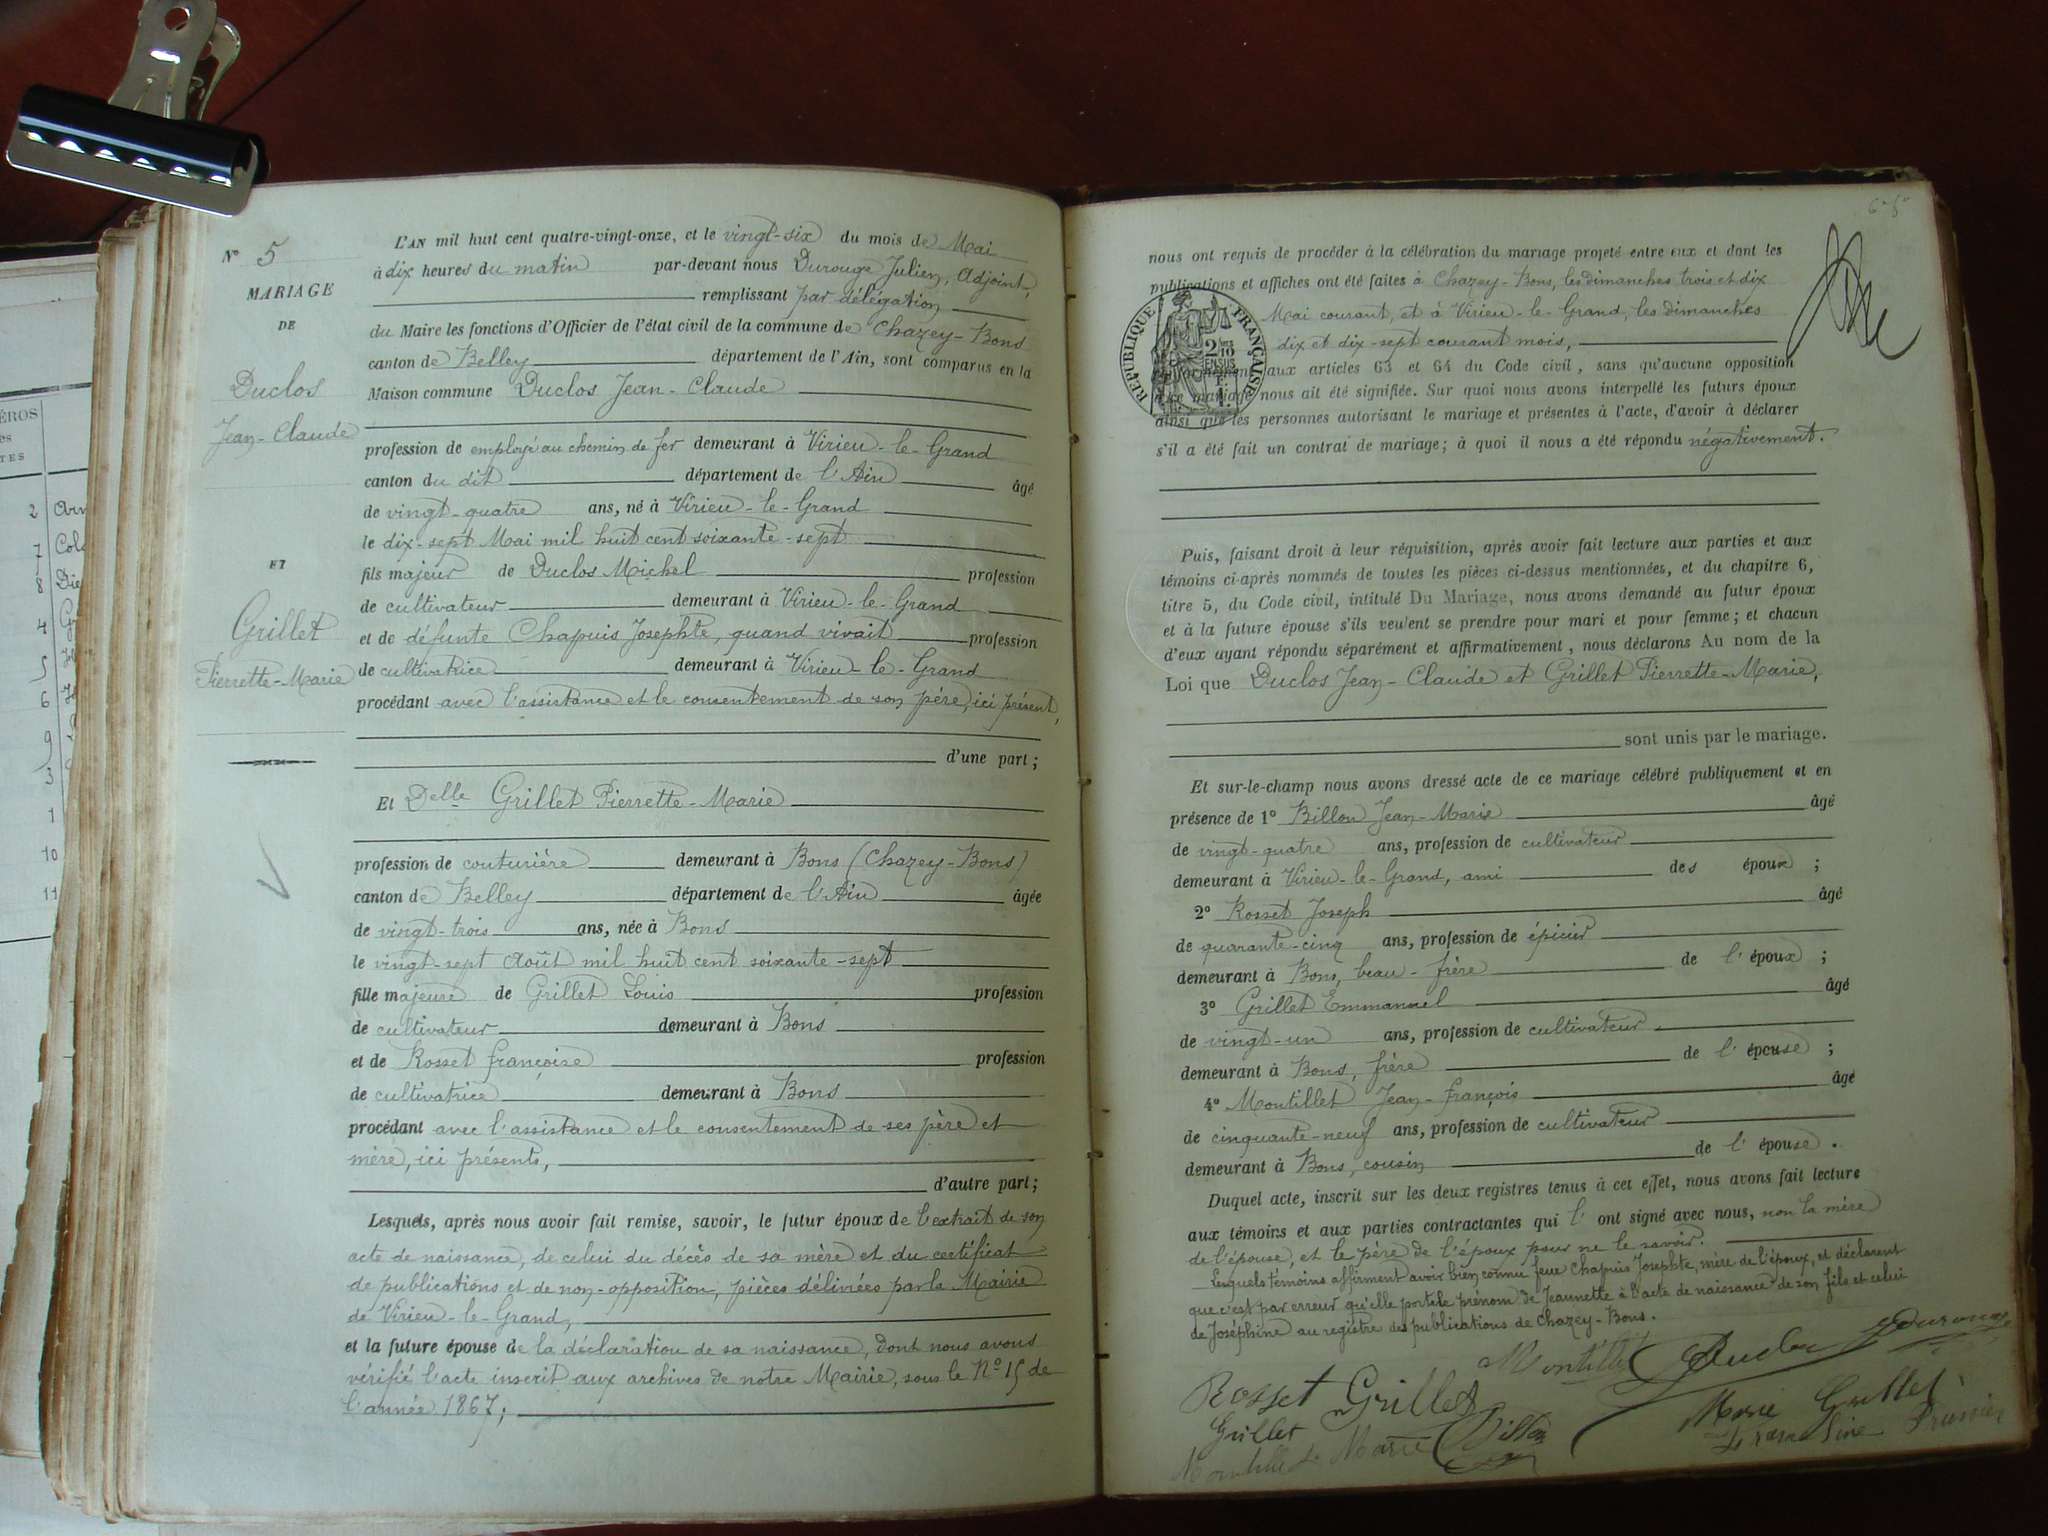 N° 5
MARIAGE
DE
Duclos
Jean-Claude
ET
Grillet
Pierrette-Marie
L'AN mil huit cent quatre-vingt-onze, et le vingt-six du mois de Mai
à dix heures du matin par-devant nous Durouge Julien, Adjoint,
remplissant par délégation
du Maire les fonctions d'Officier de l'état civil de la commune de Chazey-Bons
canton de Belley département de l'Ain, sont comparus en la
Maison commune Duclos Jean-Claude
profession de employé au chemin de fer demeurant à Virieu-le-Grand
canton du dit département de l'Ain âgé
de vingt-quatre ans, né à Virieu-le-Grand
le dix-sept Mai mil huit cent soixante-sept
fils majeur de Duclos Michel profession
de cultivateur demeurant à Virieu-le-Grand
et de défunte Chapuis Josephte, quand vivait profession
de cultivatrice demeurant à Virieu-le-Grand
procédant avec l'assistance et le consentement de son père, ici présent,
d'une part ;
Et Delle Grillet Pierrette-Marie
profession de couturière demeurant à Bons (Chazey-Bons)
canton de Belley département de l'Ain âgée
de vingt-trois ans, née à Bons
le vingt-sept Août mil huit cent soixante-sept
fille majeure de Grillet Louis profession
de cultivateur demeurant à Bons
et de Rosset françoise profession
de cultivatrice demeurant à Bons
procédant avec l'assistance et le consentement de ses père et
mère, ici présents,
d'autre part ;
Lesquels, après nous avoir fait remise, savoir, le futur époux de l'extrait de son
acte de naissance, de celui du décès de sa mère et du certificat
de publications et de non-opposition, pièces délivrées par la Mairie
de Virieu-le-Grand,
et la future épouse de la déclaration de sa naissance, dont nous avons
vérifié l'acte inscrit aux archives de notre Mairie, sous le N° 15 de
l'année 1867;
nous ont requis de procéder à la célébration du mariage projeté entre eux et dont les
publications et affiches ont été faites à Chazey-Bons, les dimanches trois et dix
Mai courant, et à Virieu-le-Grand, les dimanches
dix et dix-sept courant mois,
REPUBLIQUE FRANÇAISE
2/10
EN SUS
aux articles 63 et 64 du Code civil, sans qu'aucune opposition
à ce mariage nous ait été signifiée. Sur quoi nous avons interpellé les futurs époux
ainsi que les personnes autorisant le mariage et présentes à l'acte, d'avoir à déclarer
s'il a été fait un contrat de mariage ; à quoi il nous a été répondu négativement.
Puis, faisant droit à leur réquisition, après avoir fait lecture aux parties et aux
témoins ci-après nommés de toutes les pièces ci-dessus mentionnées, et du chapitre 6,
titre 5, du Code civil, intitulé Du Mariage, nous avons demandé au futur époux
et à la future épouse s'ils veulent se prendre pour mari et pour femme ; et chacun
d'eux ayant répondu séparément et affirmativement, nous déclarons Au nom de la
Loi que Duclos Jean-Claude et Grillet Pierrette-Marie,
sont unis par le mariage.
Et sur-le-champ nous avons dressé acte de ce mariage célébré publiquement et en
présence de 1° Billon Jean-Marie âgé
de vingt-quatre ans, profession de cultivateur
demeurant à Virieu-le-Grand, ami des époux ;
2° Rosset Joseph âgé
de quarante-cinq ans, profession de épicier
demeurant à Bons, beau-frère de l'époux ;
3° Grillet Emmanuel âgé
de vingt-un ans, profession de cultivateur
demeurant à Bons, frère de l'épouse ;
4° Montillet Jean-françois âgé
de cinquante-neuf ans, profession de cultivateur
demeurant à Bons, cousin de l'épouse.
Duquel acte, inscrit sur les deux registres tenus à cet effet, nous avons fait lecture
aux témoins et aux parties contractantes qui l'ont signé avec nous, non la mère
de l'épouse, et le père de l'époux pour ne le savoir.
Lesquels témoins affirment avoir bien connu feue Chapuis Josephte, mère de l'époux, et déclarent
que c'est par erreur qu'elle porte le prénom de Jeannette à l'acte de naissance de son fils et celui
de Joséphine au registre des publications de Chazey-Bons.
Montillet Duclos Durouge
Rosset Grillet
Marie Grillet
Grillet Billon
Marie